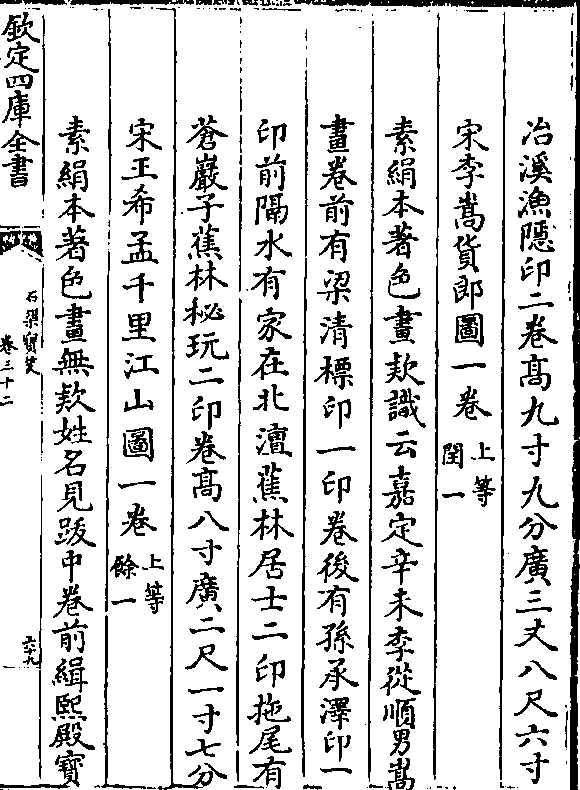 冶溪漁隱印二卷髙九寸九分廣三丈八尺六寸
宋李嵩貨郎圖一卷 上等閏一
素絹本著色畫款識云嘉定辛未李從順男嵩
畫卷前有梁清標印一印卷後有孫承澤印一
印前隔水有家在北潭蕉林居士二印拖尾有
蒼巖子蕉林秘玩二印卷髙八寸廣二尺一寸七分
宋王希孟千里江山圖一卷 上等餘一
素絹本著色畫無款姓名見跋中卷前緝熙殿寶
欽定四庫全書
石渠寶笈
卷三十二
六十九